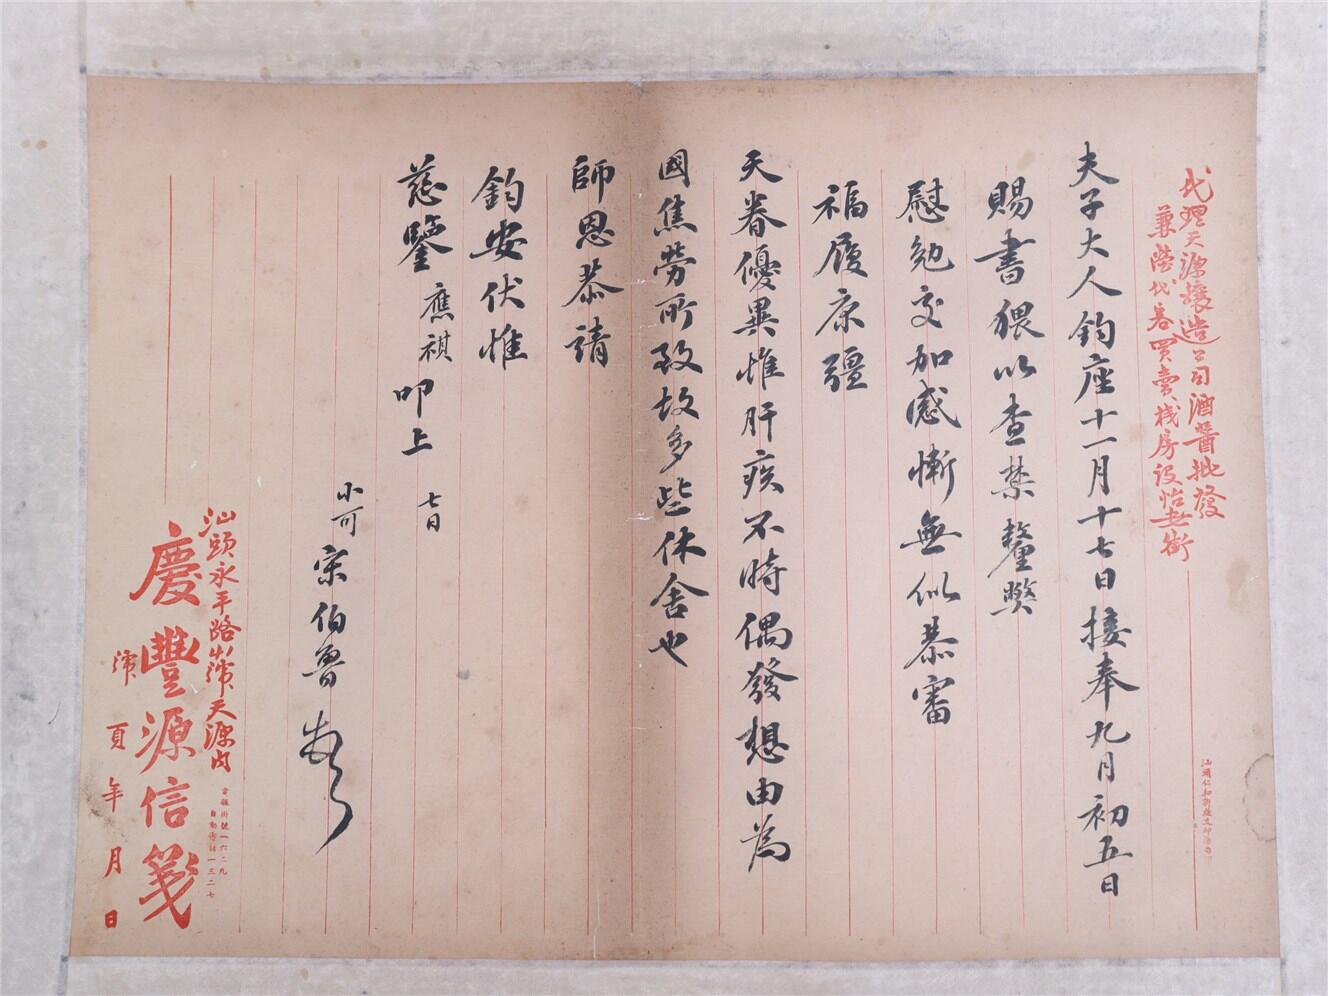 代理天源釀造公司酒醬批發
兼營代客買賣棧房設怡安街
夫子大人鈞座十一月十七日接奉九月初五日
賜書猥以查禁釐弊
慰勉交加感慚無似恭審
福履康彊
天眷優異惟肝疾不時偶發想由為
國焦勞所致故多些休舍也
師恩恭請
鈞安伏惟
慈鑒應祺叩上 七日
小可宋伯魯
汕頭永平路 天源內
電報掛號一六二九
自動電話一三二七
慶豐源信箋
號 頁 年 月 日